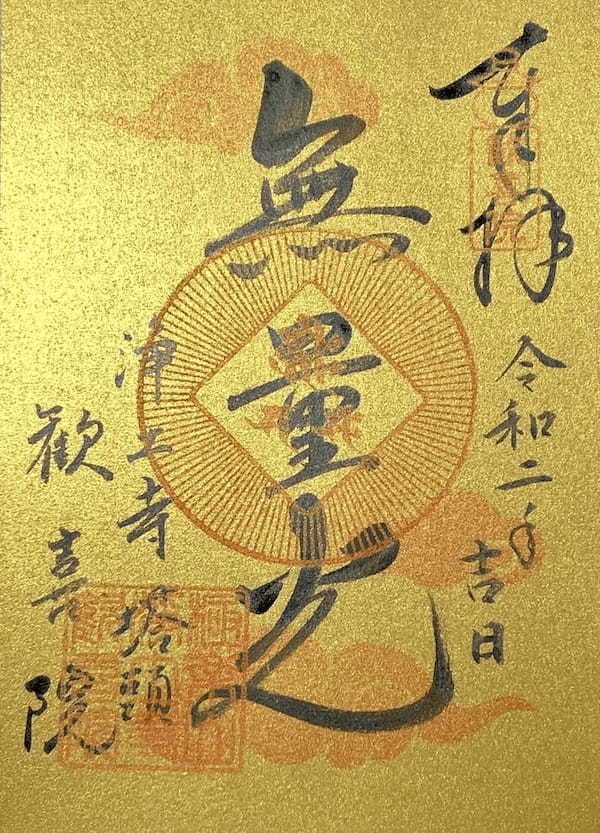 奉拝
令和二年
吉日
無量光
浄土寺
塔頭
歓喜院